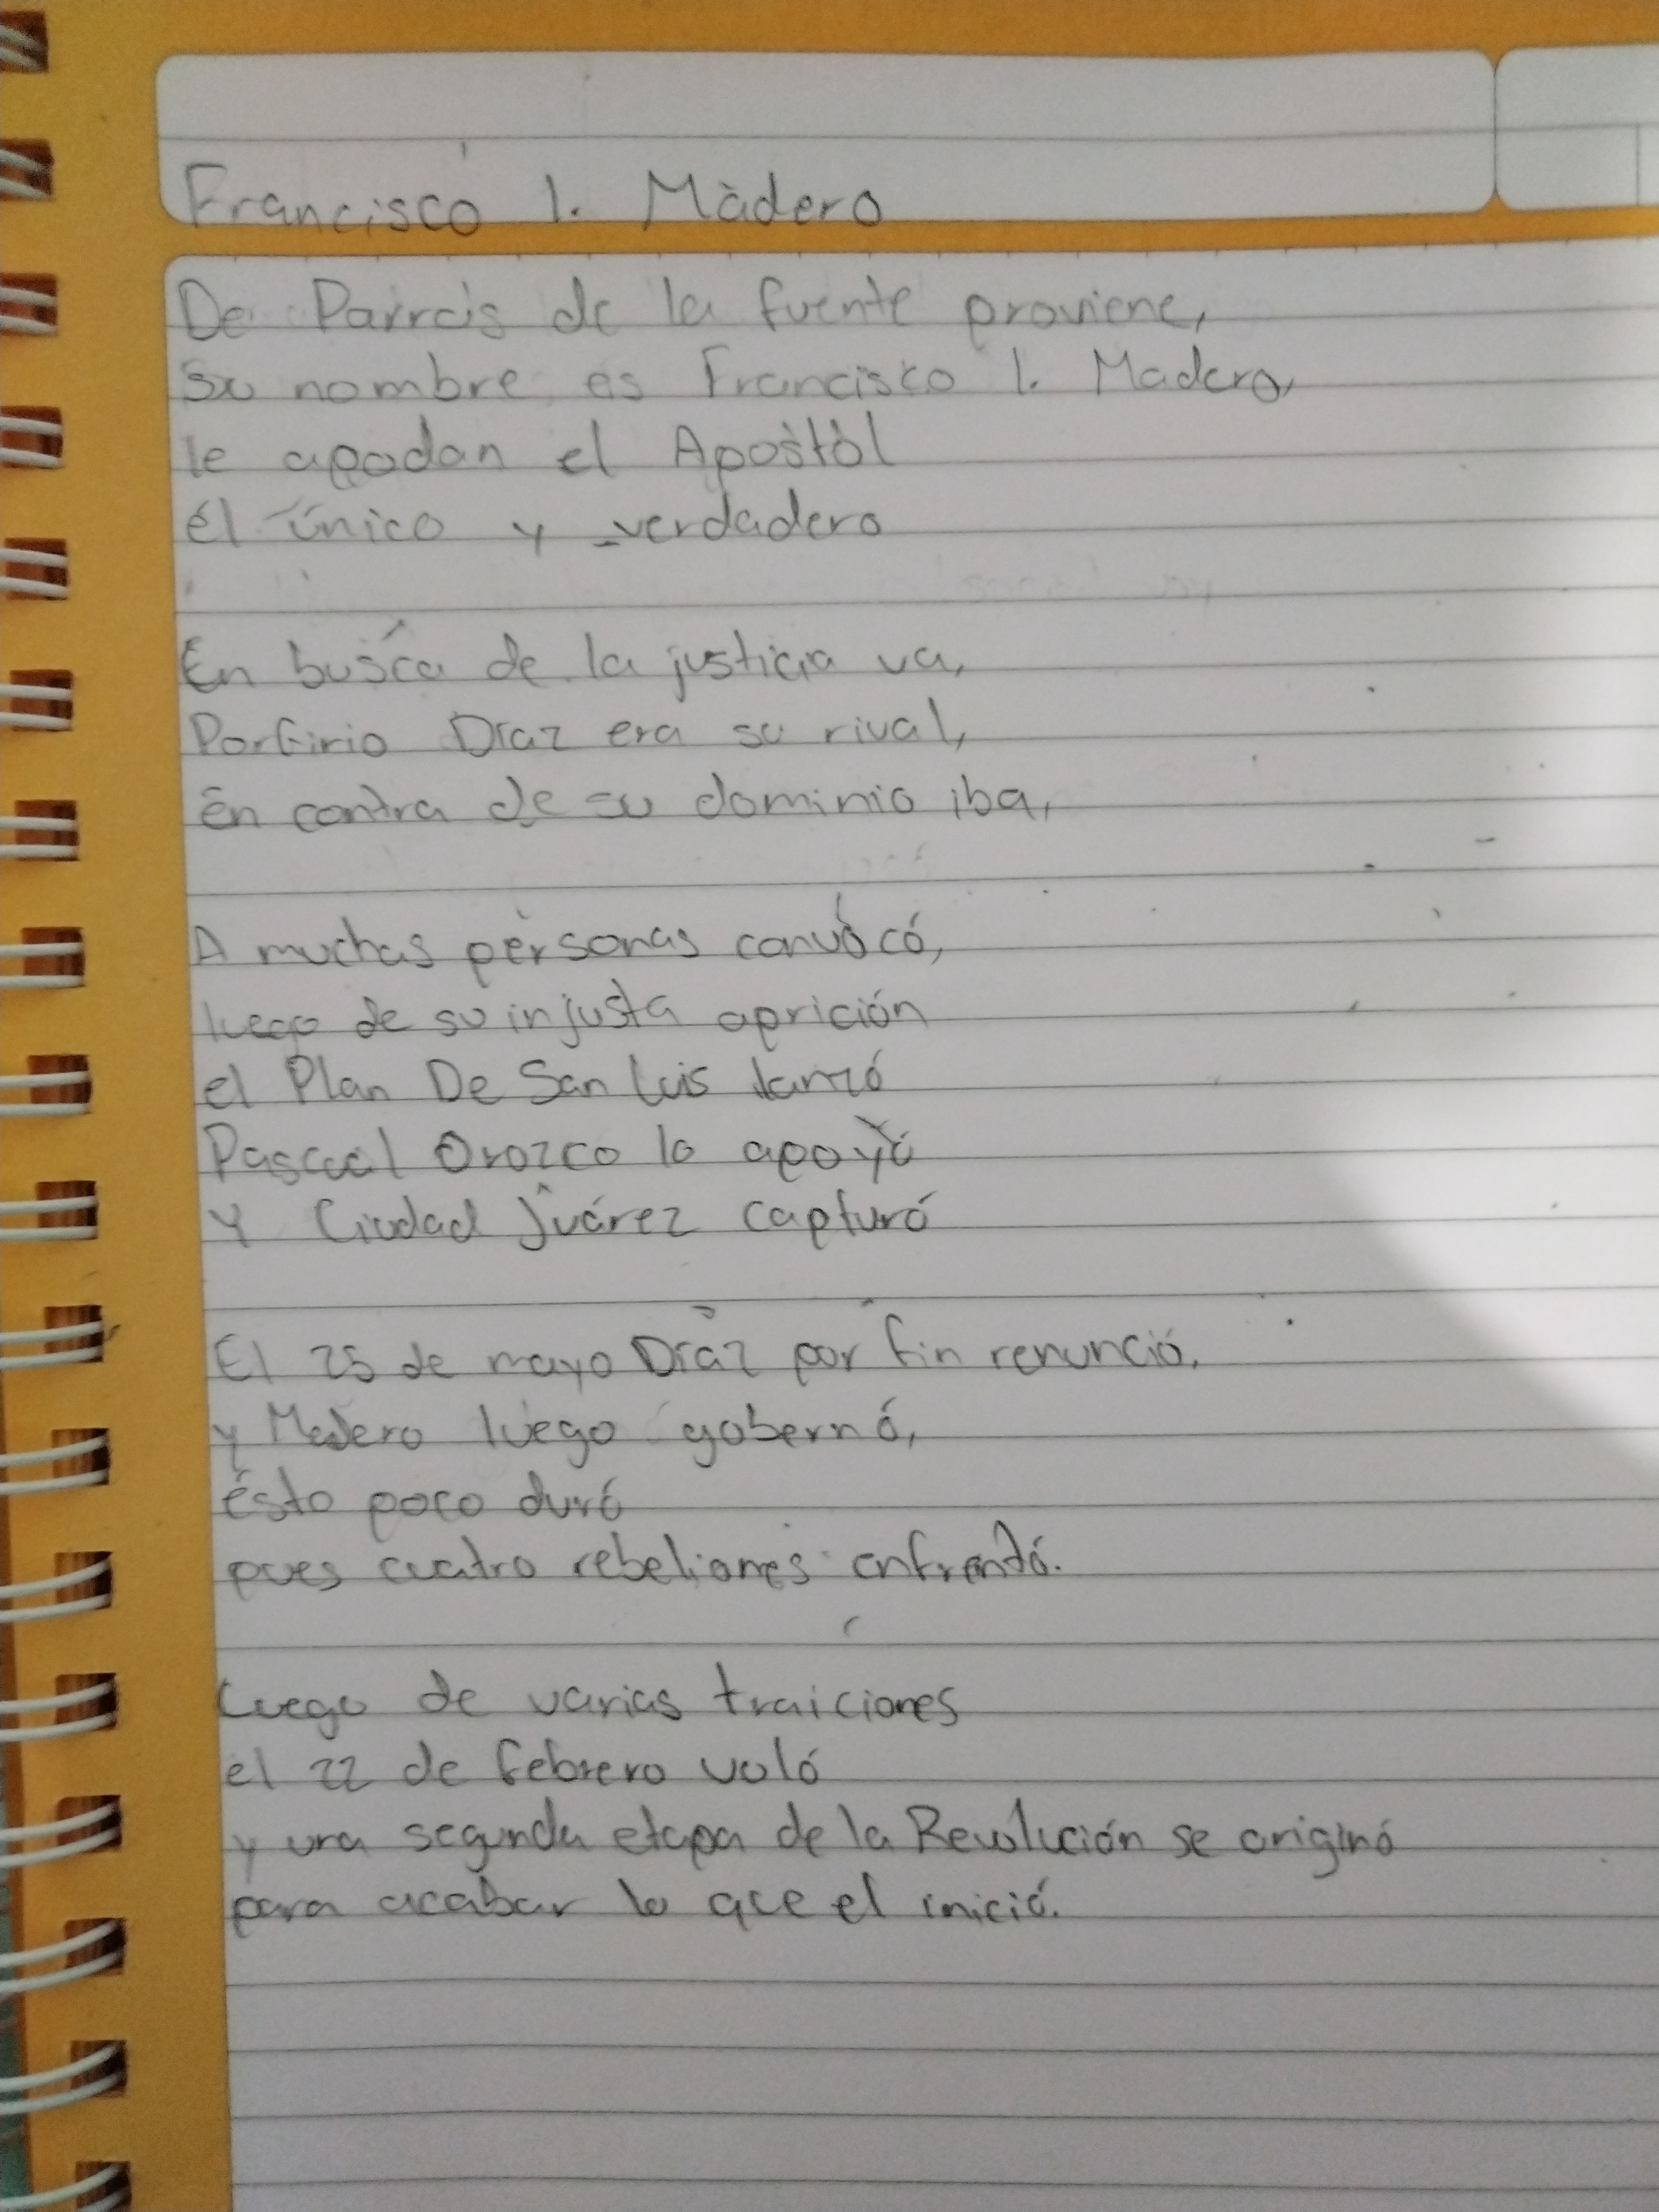 Francisco I. Madero
De Parras de la fuente proviene,
su nombre es Francisco I. Madero,
le apodan el Apostól
él único y verdadero
En busca de la justicia va,
Porfirio Díaz era su rival,
En contra de su dominio iba,
A muchas personas convocó,
luego de su injusta aprición
el Plan De San Luis lanzó
Pascual Orozco lo apoyó
Y Ciudad Juárez capturó
El 25 de mayo Díaz por fin renunció,
y Madero luego gobernó,
ésto poco duró
pues cuatro rebeliones enfrentó.
Luego de varias traiciones
el 22 de febrero voló
y una segunda etapa de la Revolución se originó
para acabar lo que el inició.